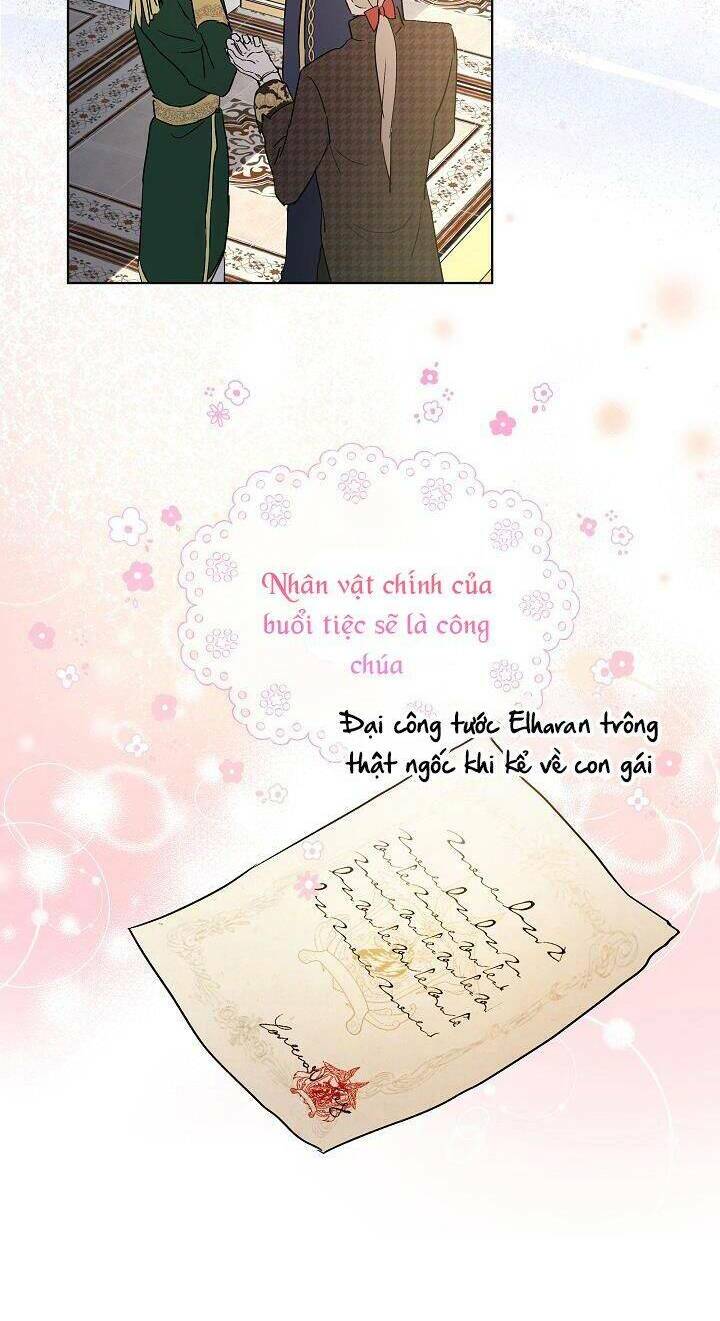 Nhân vật chính của
buổi tiệc sẽ là công
chúa
Đại công tước Elharan trông
thật ngốc khi kể về con gái